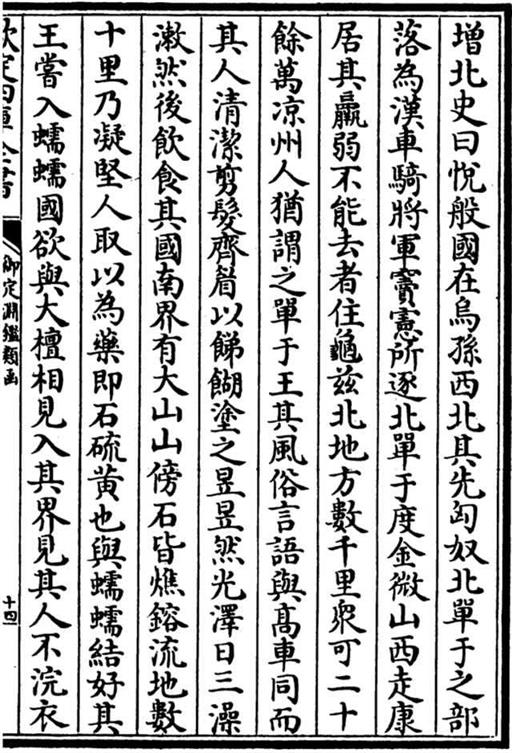 増北史曰悅般國在烏孫西北其先匈奴北單于之部
落為漢車騎將軍竇憲所逐北單于度金微山西走康
居其羸弱不能去者住龜兹北地方數千里衆可二十
餘萬凉州人猶謂之單于王其風俗言語與髙車同而
其人清潔剪髮齊眉以餳餬塗之昱昱然光澤日三澡
漱然後飲食其國南界有大山山傍石皆燋鎔流地數
十里乃凝堅人取以為藥即石硫黄也與蠕蠕結好其
王嘗入蠕蠕國欲與大檀相見入其界見其人不浣衣
欽定四庫全書
御定淵鑑類函
十四